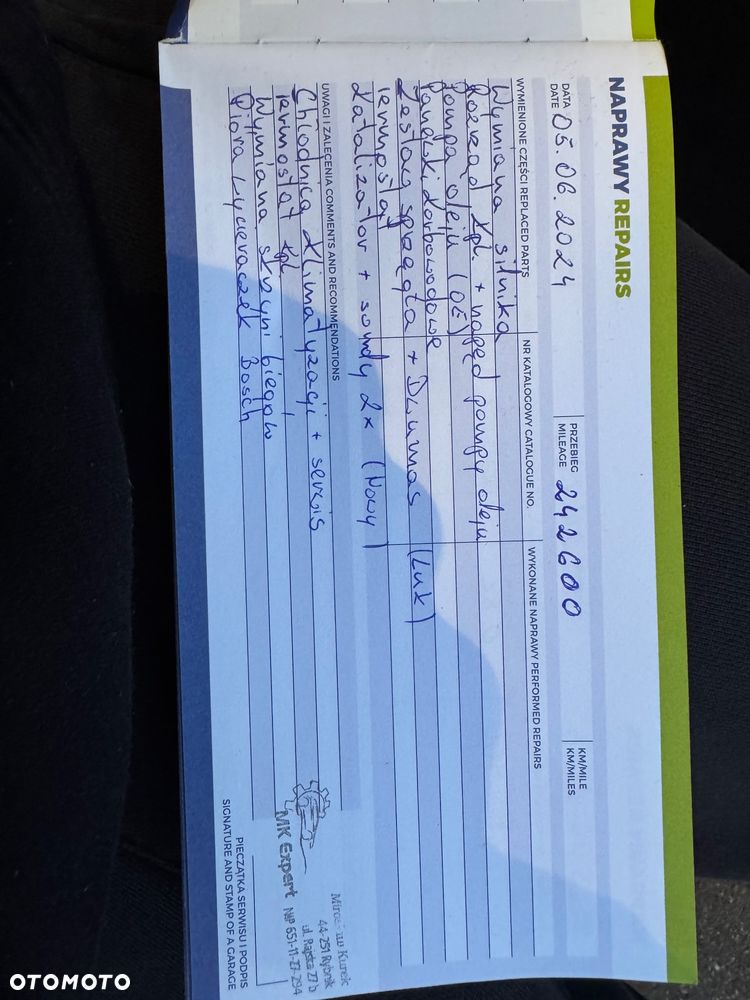 NAPRAWY REPAIRS
DATA
DATE
05.06.2024
PRZEBIEG
MILEAGE
242600
KM/MILE
KM/MILES
WYMIENIONE CZĘŚCI REPLACED PARTS
NR KATALOGOWY CATALOGUE NO.
WYKONANE NAPRAWY PERFORMED REPAIRS
Wymiana silnika
Rozrząd kpl. + napęd pompy oleju
Pompa oleju (OE)
Panewki korbowodowe
Zestaw sprzęgła + Dwumas (Luk)
termostat
Katalizator + sondy 2x (Nowy)
UWAGI I ZALECENIA COMMENTS AND RECOMMENDATIONS
Chłodnica klimatyzacji + serwis
termostat kpl
Wymiana skrzyni biegów
Pióra wycieraczek Bosch
MK Expert
Kurek
44-251 Rybnik
NIP 651-11-27-294
PIECZĄTKA SERWISU I PODPIS
SIGNATURE AND STAMP OF A GARAGE
OTOMOTO